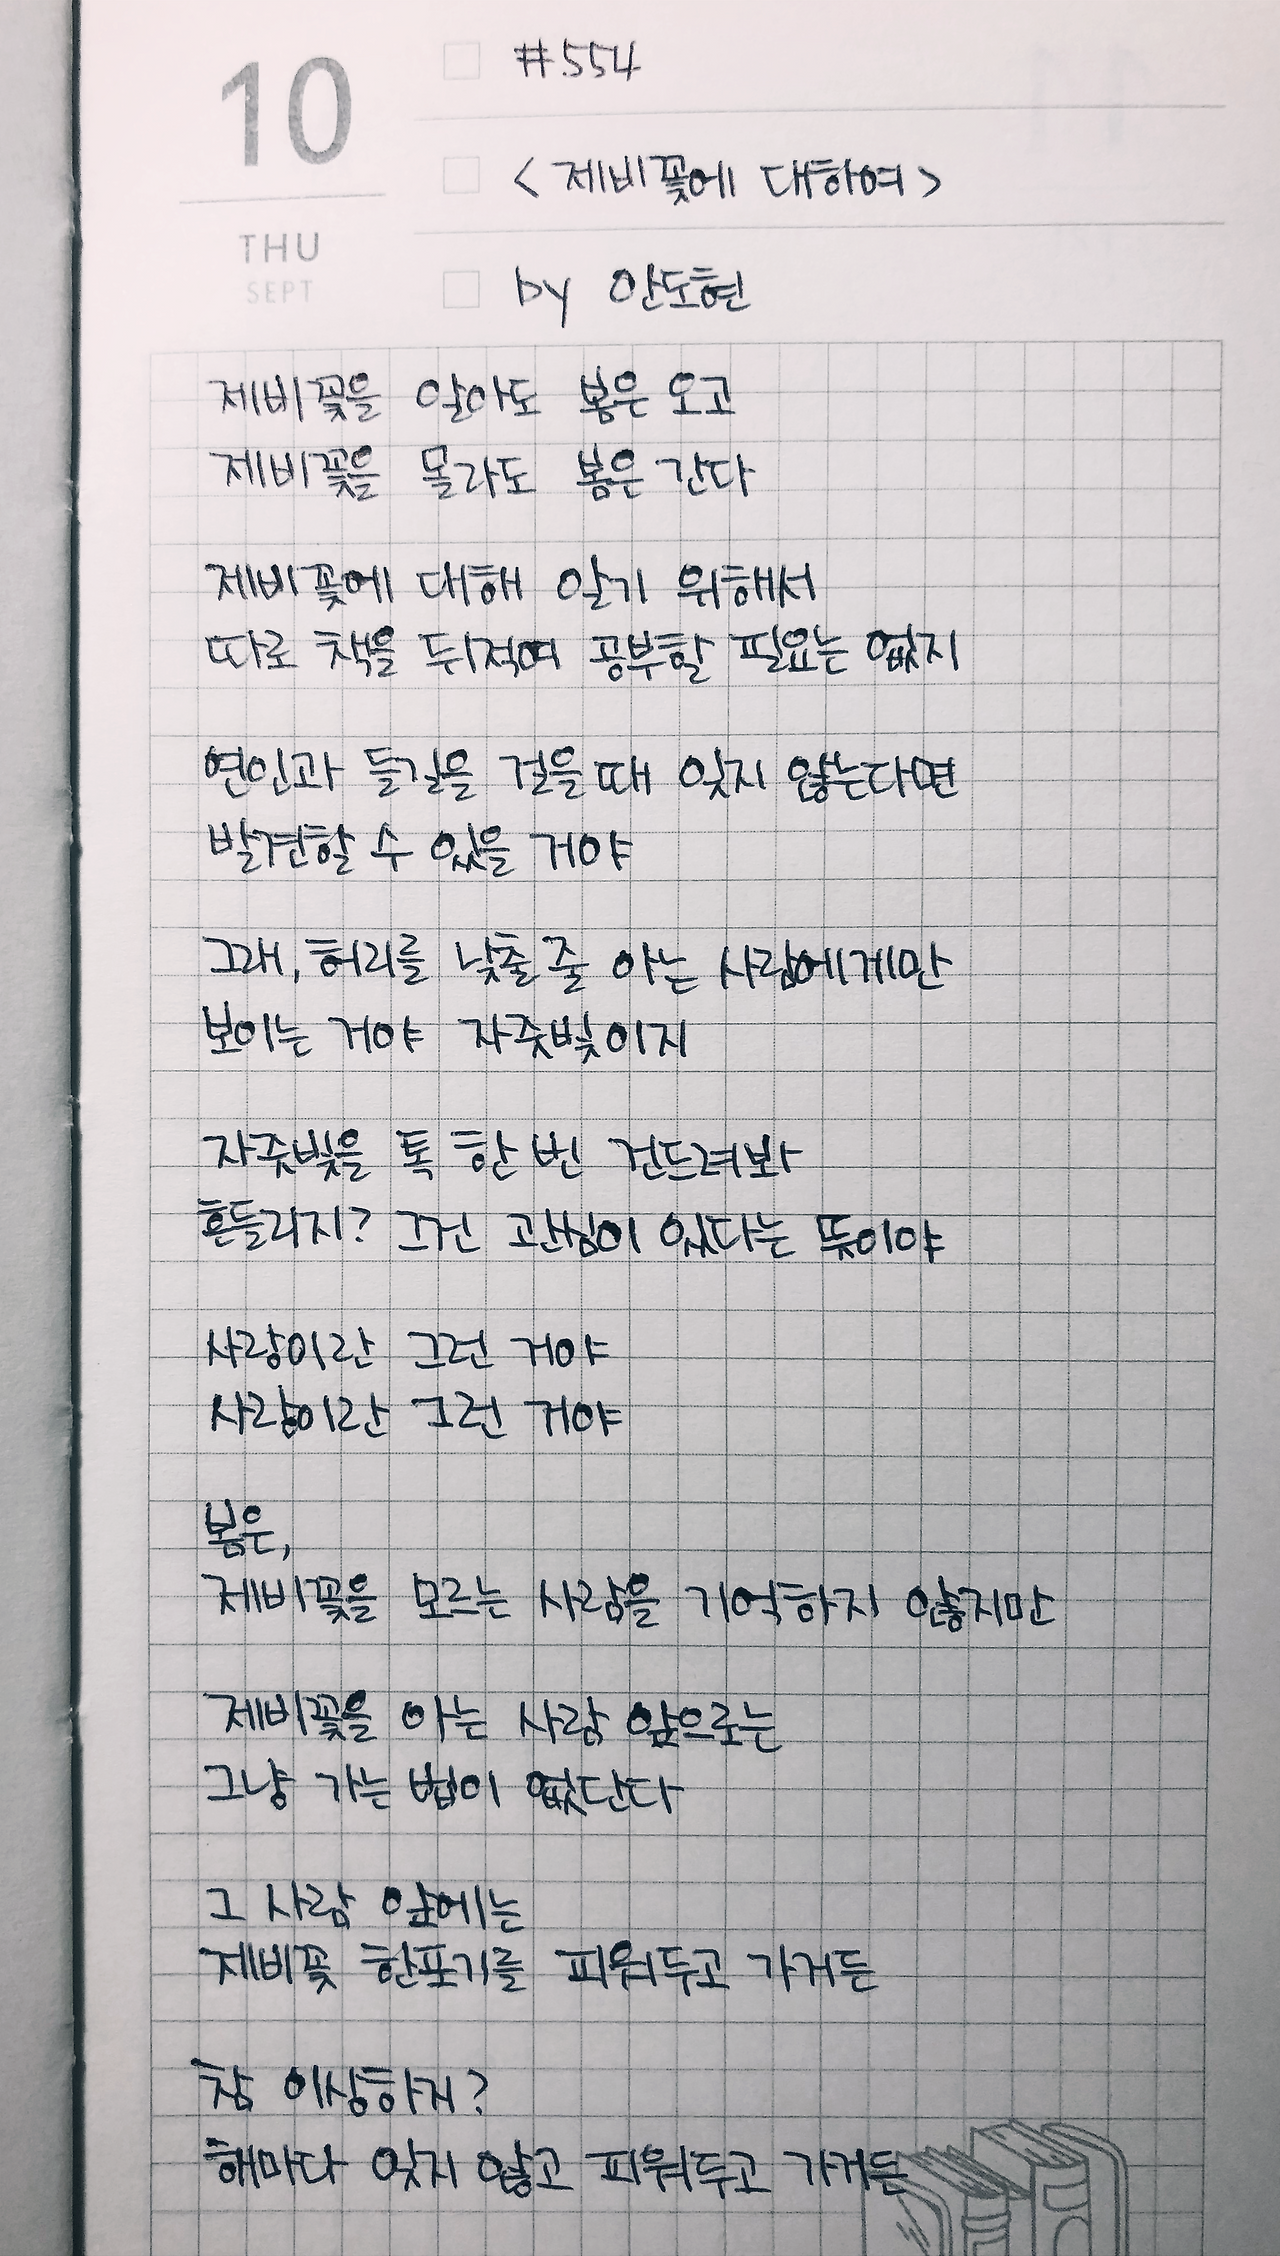 10
THU
SEPT
#554
<제비꽃에 대하여>
by 안도현
제비꽃을 알아도 봄은 오고
제비꽃을 몰라도 봄은 간다
제비꽃에 대해 알기 위해서
따로 책을 뒤적여 공부할 필요는 없지
연인과 들길을 걸을 때 잊지 않는다면
발견할 수 있을 거야
그래, 허리를 낮출 줄 아는 사람에게만
보이는 거야 자줏빛이지
자줏빛을 톡 한 번 건드려봐
흔들리지? 그건 관심이 있다는 뜻이야
사랑이란 그런 거야
사랑이란 그런 거야
봄은,
제비꽃을 모르는 사람을 기억하지 않지만
제비꽃을 아는 사람 앞으로는
그냥 가는 법이 없단다
그 사람 앞에는
제비꽃 한포기를 피워두고 가거든
참 이상하지?
해마다 잊지 않고 피워두고 가거든